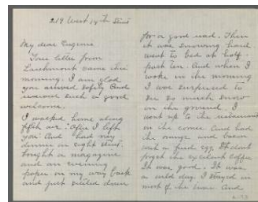 219 West 14th Street
My dear Eugene
Your letter from
Larchmont came this
morning. I am glad
you arrived safely and
received such a good
welcome.
I walked home along
fifth ave. after I left
you and had my
dinner in eight street.
bought a magazine
and an evening
paper on my way back
and just settled down
for a good read. Then
it was snowing hard
went to bed at half
past ten. And when I
woke in the morning
I was surprised to
see so much snow
on the ground. I
went up to the restaurant
on the corner and had
the orange and bacon
and a fried egg. Oh don't
forget the excellent coffee.
It was good. It was
a wild day I stayed in
most of the time. And